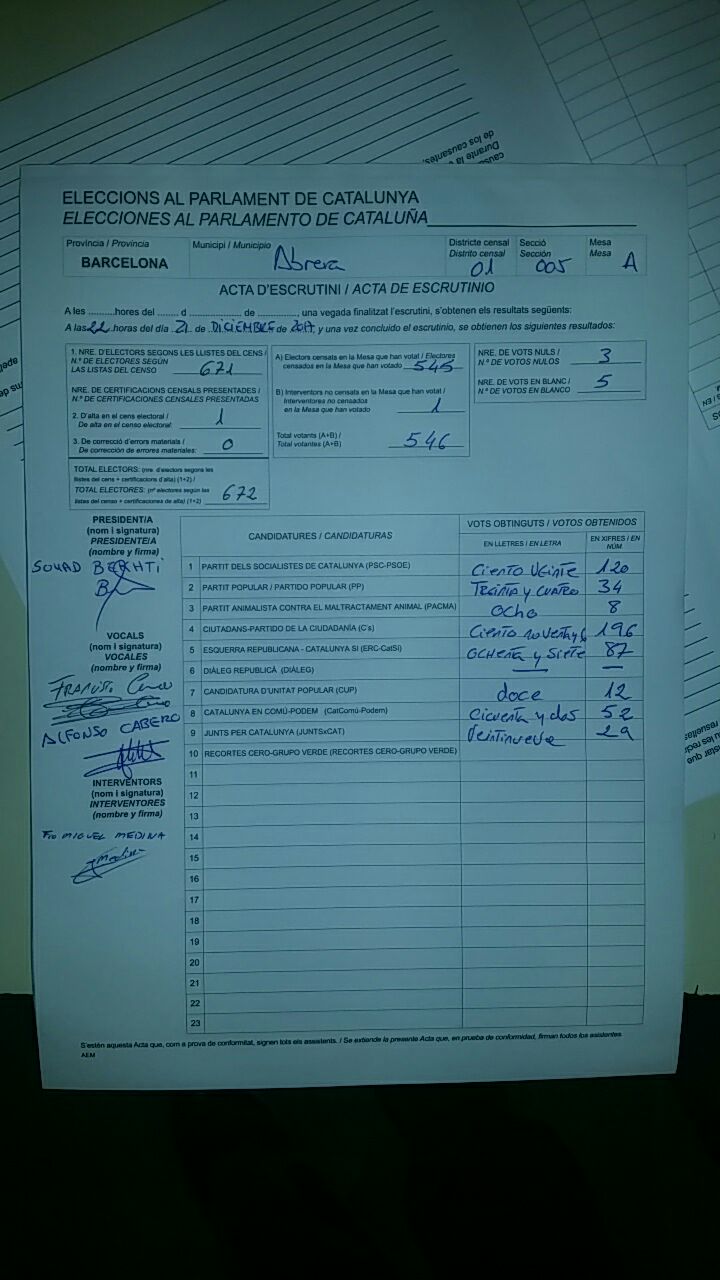 ELECCIONS AL PARLAMENT DE CATALUNYA
ELECCIONES AL PARLAMENTO DE CATALUÑA
Província / Provincia
BARCELONA
Municipi / Municipio
Abrera
Districte censal
Distrito censal
01
Secció
Sección
005
Mesa
Mesa
A
ACTA D'ESCRUTINI / ACTA DE ESCRUTINIO
A les ..........hores del ........ d .................. de ............., una vegada finalitzat l'escrutini, s'obtenen els resultats següents:
A las 22 horas del día 21 de DICIEMBRE de 2017 y una vez concluido el escrutinio, se obtienen los siguientes resultados:
1. NRE. D'ELECTORS SEGONS LES LLISTES DEL CENS /
N.º DE ELECTORES SEGÚN
LAS LISTAS DEL CENSO
671
NRE. DE CERTIFICACIONS CENSALS PRESENTADES /
N.º DE CERTIFICACIONES CENSALES PRESENTADAS
2. D'alta en el cens electoral /
De alta en el censo electoral:
1
3. De correcció d'errors materials /
De corrección de errores materiales:
0
TOTAL ELECTORS: (nre. d'electors segons les
llistes del cens + certificacions d'alta) (1+2) /
TOTAL ELECTORES: (nº electores según las
listas del censo + certificaciones de alta) (1+2)
672
A) Electors censats en la Mesa que han votat / Electores
censados en la Mesa que han votado
545
B) Interventors no censats en la Mesa que han votat /
Interventores no censados
en la Mesa que han votado
1
Total votants (A+B) /
Total votantes (A+B)
546
NRE. DE VOTS NULS /
N.º DE VOTOS NULOS
3
NRE. DE VOTS EN BLANC /
N.º DE VOTOS EN BLANCO
5
PRESIDENT/A
(nom i signatura)
PRESIDENTE/A
(nombre y firma)
SOUAD BERHTI
VOCALS
(nom i signatura)
VOCALES
(nombre y firma)
ALFONSO CABERO
INTERVENTORS
(nom i signatura)
INTERVENTORES
(nombre y firma)
Fco MIGUEL MEDINA
CANDIDATURES / CANDIDATURAS
VOTS OBTINGUTS / VOTOS OBTENIDOS
EN LLETRES / EN LETRA
EN XIFRES / EN NÚM
1 PARTIT DELS SOCIALISTES DE CATALUNYA (PSC-PSOE) Ciento veinte 120
2 PARTIT POPULAR / PARTIDO POPULAR (PP) Treinta y cuatro 34
3 PARTIT ANIMALISTA CONTRA EL MALTRACTAMENT ANIMAL (PACMA) Ocho 8
4 CIUTADANS-PARTIDO DE LA CIUDADANÍA (C's) Ciento noventa y 6 196
5 ESQUERRA REPUBLICANA - CATALUNYA SI (ERC-CatSí) Ochenta y siete 87
6 DIÀLEG REPUBLICÀ (DIÀLEG) — —
7 CANDIDATURA D'UNITAT POPULAR (CUP) doce 12
8 CATALUNYA EN COMÚ-PODEM (CatComú-Podem) Cicuenta y dos 52
9 JUNTS PER CATALUNYA (JUNTSxCAT) Veintinueve 29
10 RECORTES CERO-GRUPO VERDE (RECORTES CERO-GRUPO VERDE)
11
12
13
14
15
16
17
18
19
20
21
22
23
S'estén aquesta Acta que, com a prova de conformitat, signen tots els assistents. / Se extiende la presente Acta que, en prueba de conformidad, firman todos los asistentes.
AEM